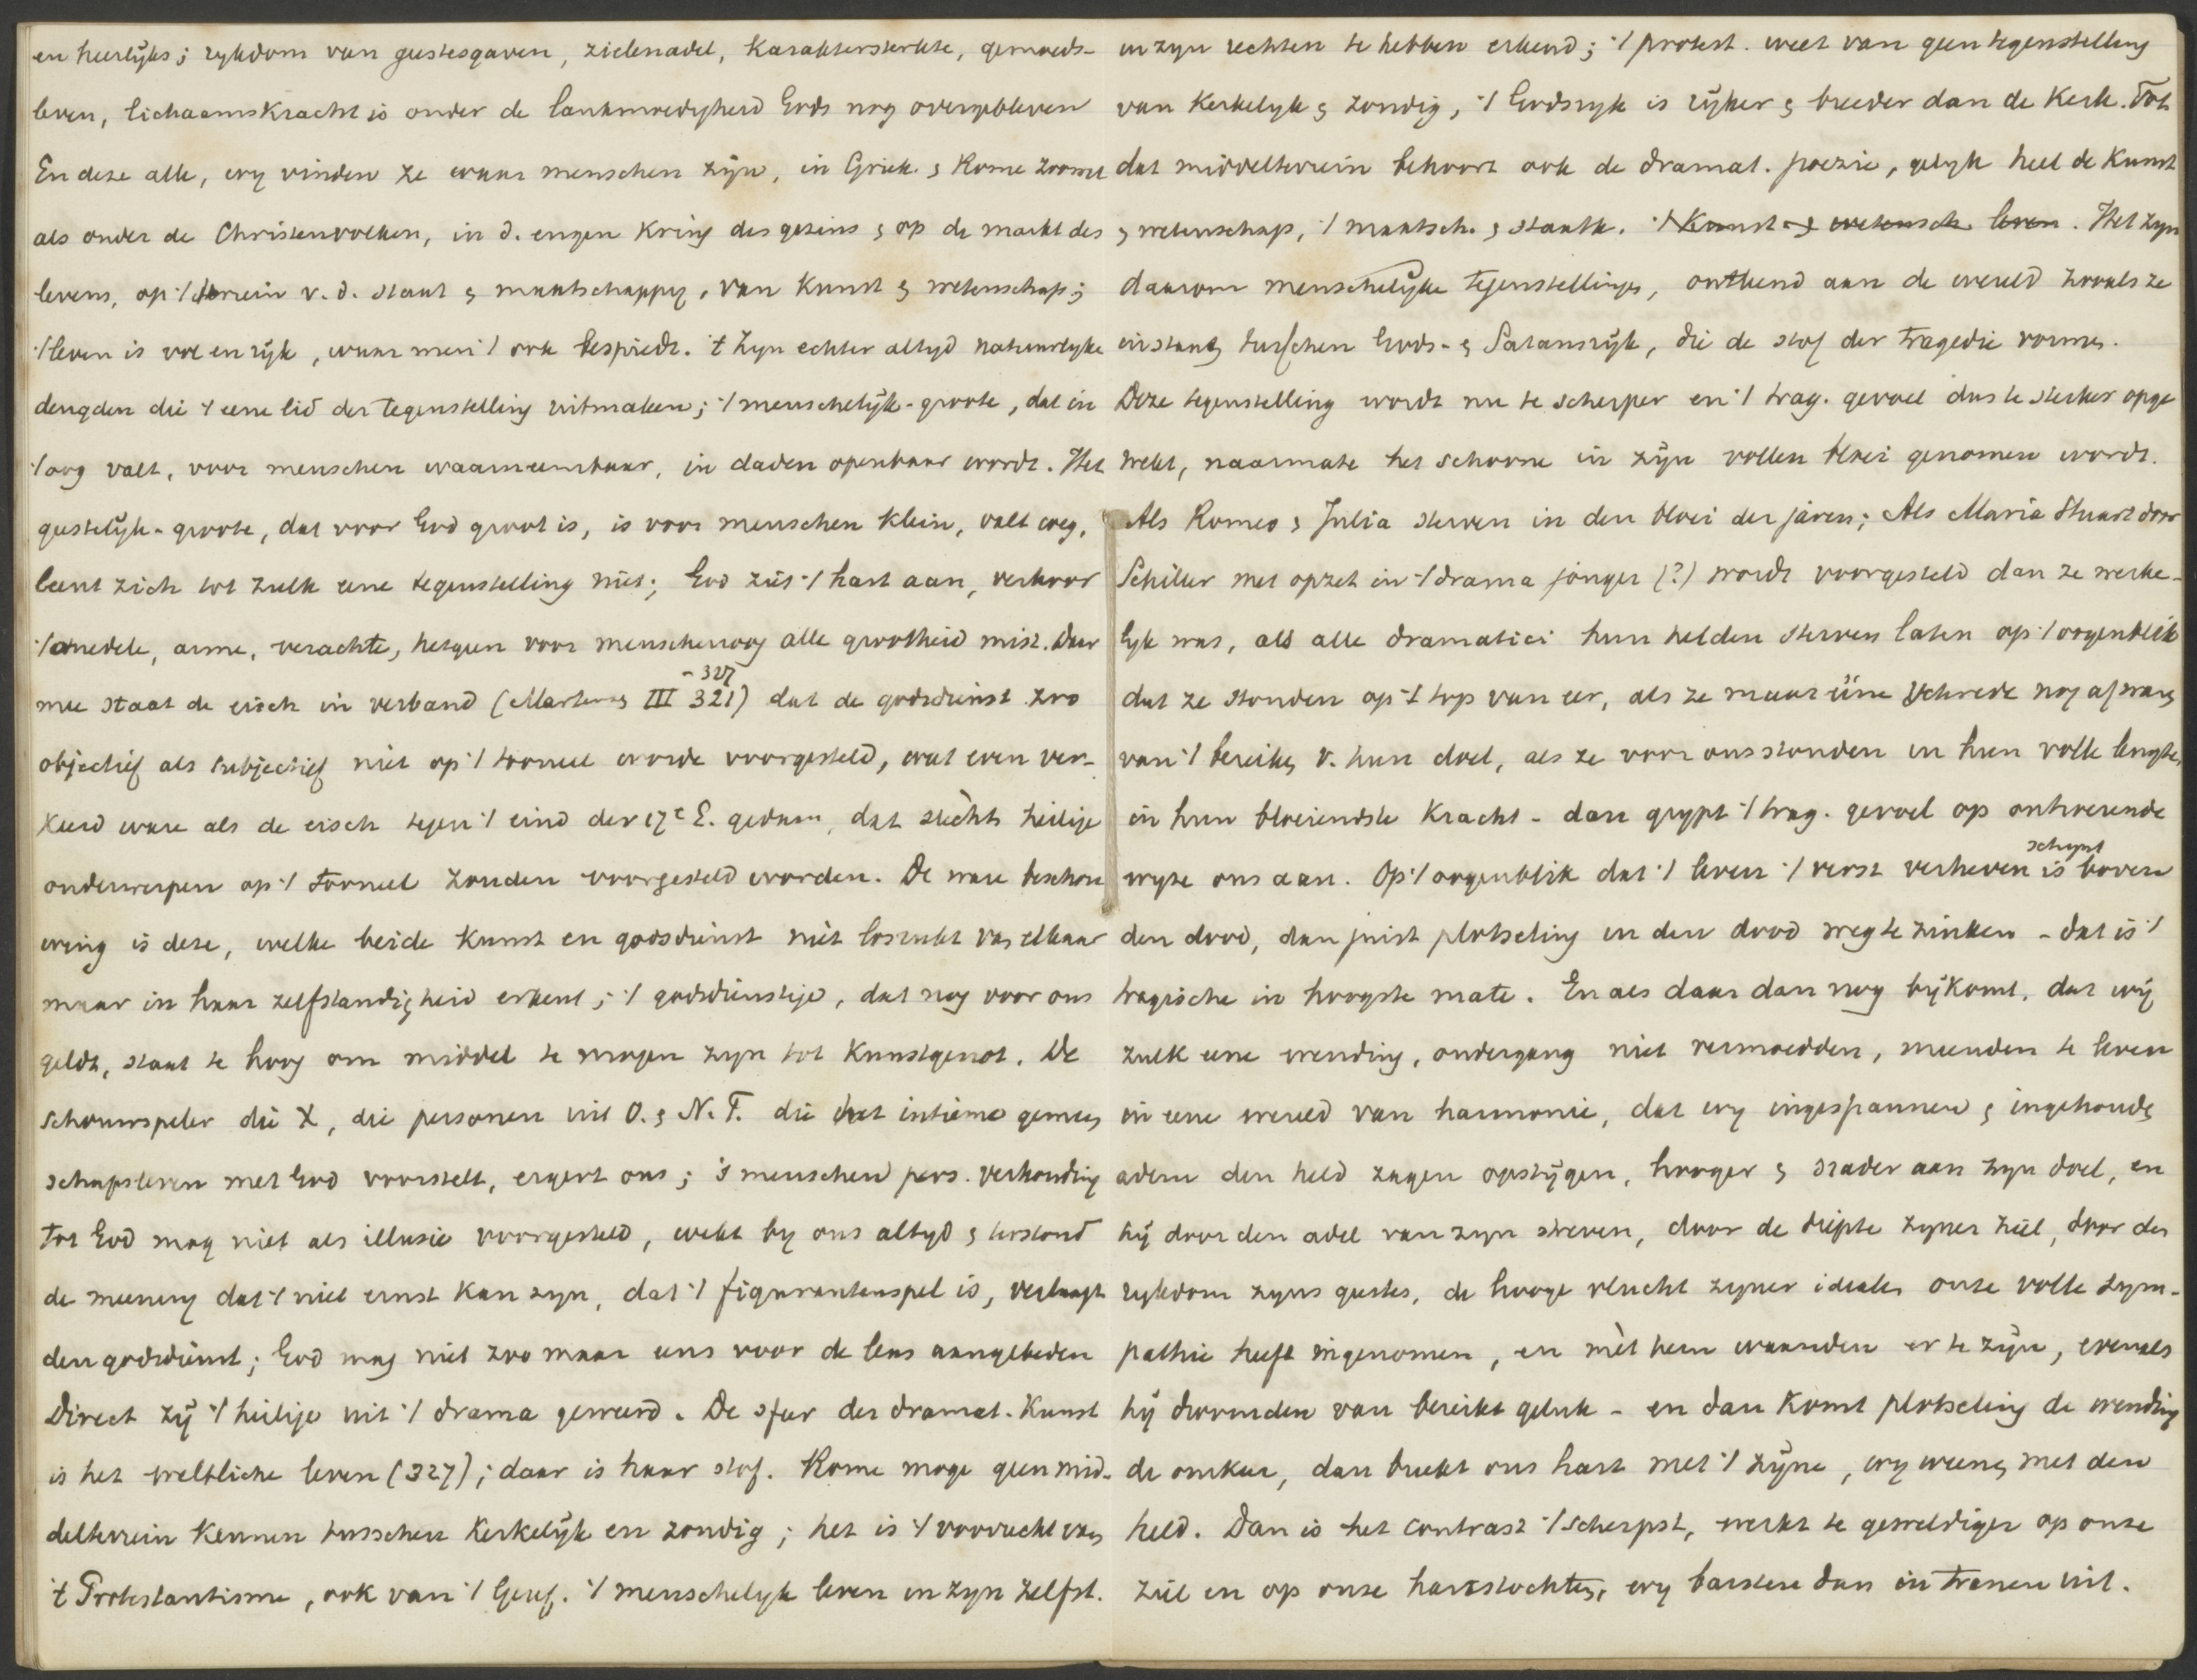 en heerlijks; rykdom van geestesgaven, zielenadel, karaktersterkte, gemoeds-
leven, lichaamskracht is onder de lankmoedigheid Gods nog overgebleven
En deze alle, wy vinden ze waar menschen zijn, in Griek. & Rome zoowel
als onder de Christenvolken, in d. engen kring des gezins & op de markt des
levens, op 't terrein v. d. staat & maatschappy, van kunst & wetenschap;
't leven is vol en rijk, waar men 't ook bespiedt. 't Zyn echter altyd natuurlyke
deugden die 't eene lid der tegenstelling uitmaken; 't menschelijk-groote, dat in
't oog valt, voor menschen waarneembaar, in daden openbaar wordt. Het
geestelijk-groote, dat voor God groot is, is voor menschen klein, valt weg,
leent zich tot zulk eene tegenstelling niet; God ziet 't hart aan, verkoor
't onedele, arme, verachte, hetgeen voor menschenoog alle grootheid mist. Daar
mee staat de eisch in verband (Martens III 321 -327) dat de godsdienst zoo
objectief als subjectief niet op 't tooneel worde voorgesteld, wat even ver-
keerd ware als de eisch tegen 't eind der 17e E. gedaan, dat slechts heilige
onderwerpen op 't tooneel zouden voorgesteld worden. De ware beschou
wing is deze, welke beide kunst en godsdienst niet losrukt van elkaar
maar in haar zelfstandigheid erkent; 't godsdienstige, dat nog voor ons
geldt, staat te hoog om middel te mogen zyn tot kunstgenot. De
schouwspeler die X, die personen uit O. & N. T. die het intieme gemeen
schapsleven met God voorstelt, ergert ons; 's menschen pers. verhouding
tot God mag niet als illusie voorgesteld, wekt by ons altyd & terstond
de meening dat 't niet ernst kan zyn, dat 't figurantenspel is, verlaagt
den godsdienst; God mag niet zoo maar eens voor de leus aangebeden
Direct zij 't heilige uit 't drama geweerd. De sfeer der dramat. kunst
is het weltliche leven (327); daar is haar stof. Rome moge geen mid-
delterrein kennen tusschen kerkelijk en zondig; het is 't voorrecht van
't Protestantisme, ook van 't Geref. 't menschelyk leven in zyn zelfst.
in zyn rechten te hebben erkend; 't protest. weet van geen tegenstelling
van kerkelyk & zondig, 't Godsryk is rijker & breeder dan de kerk. Tot
dat middelterrein behoort ook de dramat. poezie, gelyk heel de kunst
& wetenschap, 't maatsch. & staatk. 't kunst- & wetensch. leven. Het zyn
daarom menschelijke tegenstellingen, ontleend aan de wereld zooals ze
instaat tusschen Gods- & Satansrijk, die de stof der tragedie vormen.
Deze tegenstelling wordt nu te scherper en 't trag. gevoel dus te sterker opge
wekt, naarmate het schoone in zijn vollen bloei genomen wordt.
Als Romeo & Julia sterven in den bloei der jaren; Als Maria Stuart door
Schiller met opzet in 't drama jonger (?) wordt voorgesteld dan ze werke-
lyk was, als alle dramatici hun helden sterven laten op 't oogenblik
dat ze stonden op 't top van eer, als ze maar ééne schrede nog af waren
van 't bereiken v. hun doel, als ze voor ons stonden in hun volle lengte,
in hun bloeiendste kracht - dan grypt 't trag. gevoel op ontroerende
wyze ons aan. Op 't oogenblik dat 't leven 't verst verheven is schynt boven
den dood, dan juist plotseling in den dood weg te zinken - dat is 't
tragische in hoogste mate. En als daar dan nog bijkomt, dat wij
zulk eene wending, ondergang niet vermoedden, meenden te leven
in eene wereld van harmonie, dat wy ingespannen & ingehouden
adem den held zagen opstijgen, hooger & nader aan zyn doel, en
hij door den adel van zyn streven, door de diepte zyner ziel, door den
rykdom zyns geestes, de hooge vlucht zyner idealen onze volle sym-
pathie heeft ingenomen, en mèt hem waanden er te zijn, evenals
hij droomden van bereikt geluk - en dan komt plotseling de wending
de omkeer, dan breekt ons hart met 't zijne, wy weenen met den
held. Dan is het contrast 't scherpst, werkt te geweldiger op onze
ziel en op onze hartstochten, wy barsten dan in tranen uit.